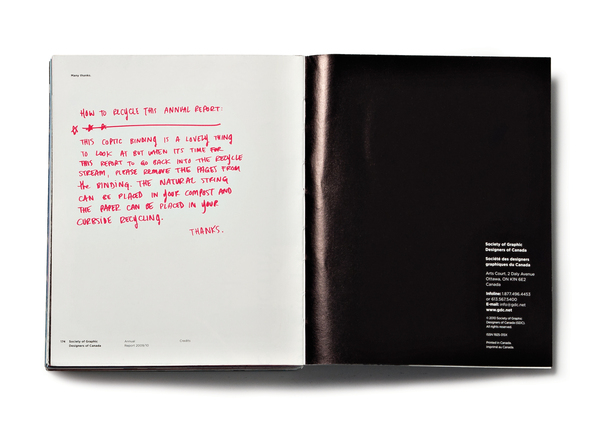 Many thanks
HOW TO RECYCLE THIS ANNUAL REPORT:
THIS COPTIC BINDING IS A LOVELY THING
TO LOOK AT BUT WHEN ITS TIME FOR
THIS REPORT TO GO BACK INTO THE RECYCLE
STREAM, PLEASE REMOVE THE PAGES FROM
the BINDING. THE NATURAL STRING
CAN BE PLACED IN your COMPOST AND
THE PAPER CAN BE PLACED IN your
CURBSIDE RECYCLING.
THANKS.
Society of Graphic
Designers of Canada
Annual
Report
Society of Graphic
Designers of Canada
Société des designers
graphiques du Canada
Arts Court, 2 Daly Avenue
Ottawa, ON K1N 6E2
Canada
Infoline: 1.877.496.4453
or 613.567.5400
E-mail: info@gdc.net
www.gdc.net
Society of Graphic
Designers of Canada (GDC).
All rights reserved.
Printed in Canada.
imprimé au Canada.